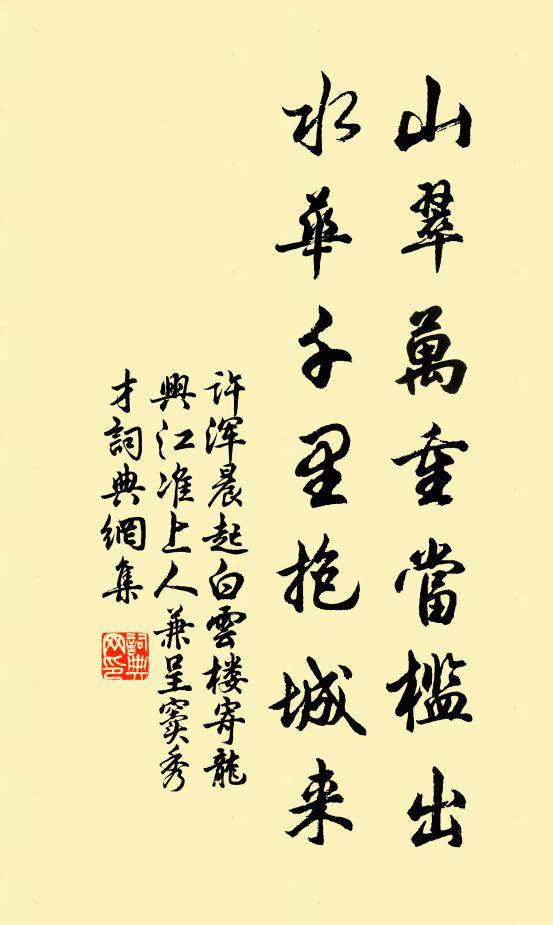 山翠萬重當檻出
水華千里抱城来
许浑晨起白雲楼寄龍
興江准上人兼呈窦秀
才詞典網集
詞典
网印